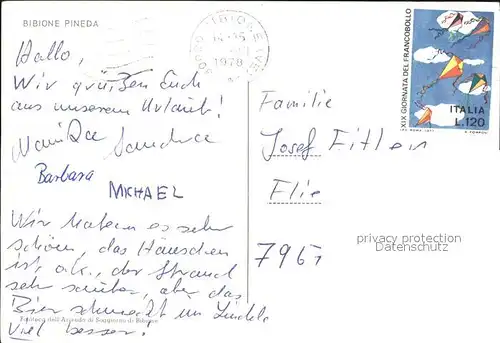 BIBIONE PINEDA
BIBIONE (VE)
1978
XIX GIORNATA DEL FRANCOBOLLO
ITALIA
L.120
Hallo,
Wir grüßen Euch
aus unserem Urlaub!
Sandra
Barbara
MICHAEL
Familie
Josef
7967
privacy protection
DATENSCHUTZ
Wir haben es sehr
schön, das Häuschen
ist o.k., der Strand
sehr sauber, aber das
Bier schmeckt im Ländle
viel besser!
Editore dall'Azienda di Soggiorno di Bibione